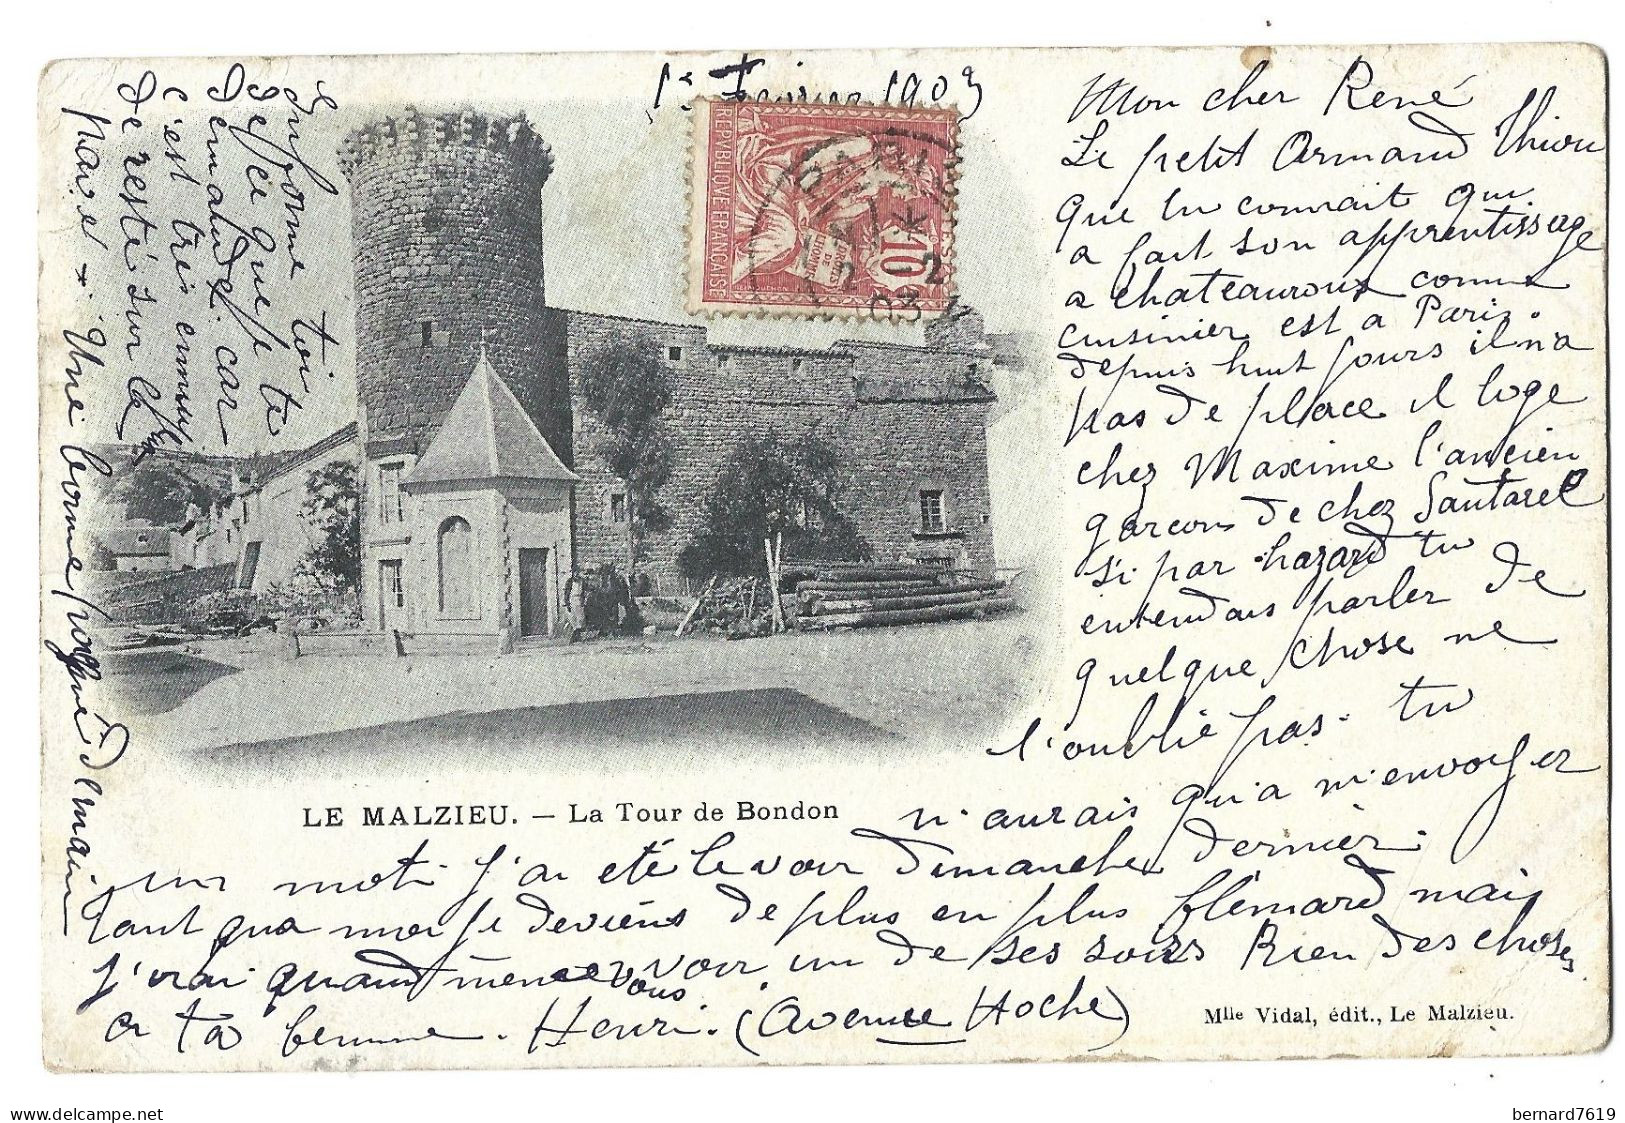 1er Février 1903
REPVBLIQVE FRANCAISE
10
DROITS
DE
L'HOMME
PARIS
2
03
Mon cher René
Le petit Armand Thiou
que tu connait qui
a fait son apprentissage
a chateauroux comme
cuisinier est a Paris.
depuis huit jours il n'a
pas de place il loge
chez Maxime l'ancien
garcons de chez Sautarel
si par hazard tu
entendais parler de
quelque chose ne
l'oublie pas. tu
n'aurais qu'a m'envoyer
un mot. j'ai été le voir dimanche dernier.
tant qua moi je deviens de plus en plus flémard mais
j'irai quand meme vous voir un de ses soirs Rien des choses
a ta femme. Henri. (Avenue Hoche)
Informe toi
de ce que
Dernaudet. car
c'est très ennuyeux
de resté sur le
pavé. Une bonne poignée
de main
LE MALZIEU. — La Tour de Bondon
Mlle Vidal, édit., Le Malzieu.
bernard7619